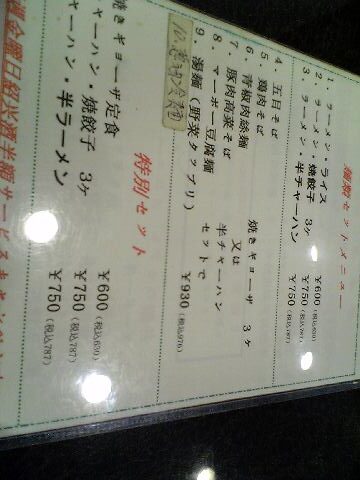 麺類セットメニュー
1. ラーメン・ライス ￥600(税込630)
2. ラーメン・焼餃子 3ヶ ￥750(税込787)
3. ラーメン・半チャーハン ￥750(税込787)
4. 五目そば
5. 鶏肉そば
6. 青椒肉絲麺
7. 豚肉高菜そば
8. マーボー豆腐麺
9. 湯麺(野菜タップリ)
焼きギョーザ 3ヶ
又は
半チャーハン
セットで
￥930(税込976)
特別セット
焼きギョーザ定食 ￥600(税込630)
チャーハン・焼餃子 3ヶ ￥750(税込787)
チャーハン・半ラーメン ￥750(税込787)